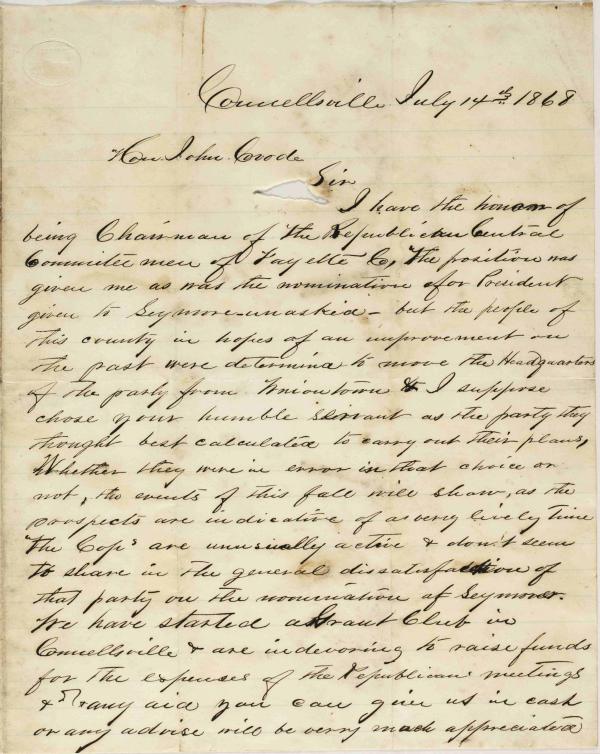 Connellsville July 14th 1868
Hon John Covode
Sir
I have the honor of
being Chairman of the Republican Central
Committee men of Fayette Co, The position was
given me as was the nomination for President
given to Seymore-unasked - but the people of
this county in hopes of an improvement on
the past were determind to move the Headquarters
of the party from Uniontown & I suppose
chose your humble servant as the party they
thought best calculated to carry out their plans,
Whether they were in error in that choice or
not, the events of this fall will show, as the
prospects are indicative of a very lively time
The Cops are unusually active & don't seem
to share in the general dissatisfaction of
that party on the nomination of Seymore.
We have started a Grant Club in
Connellsville & are indevoring to raise funds
for the expenses of the Republican meetings
& any aid you can give us in cash
or any advise will be verry much appreciated